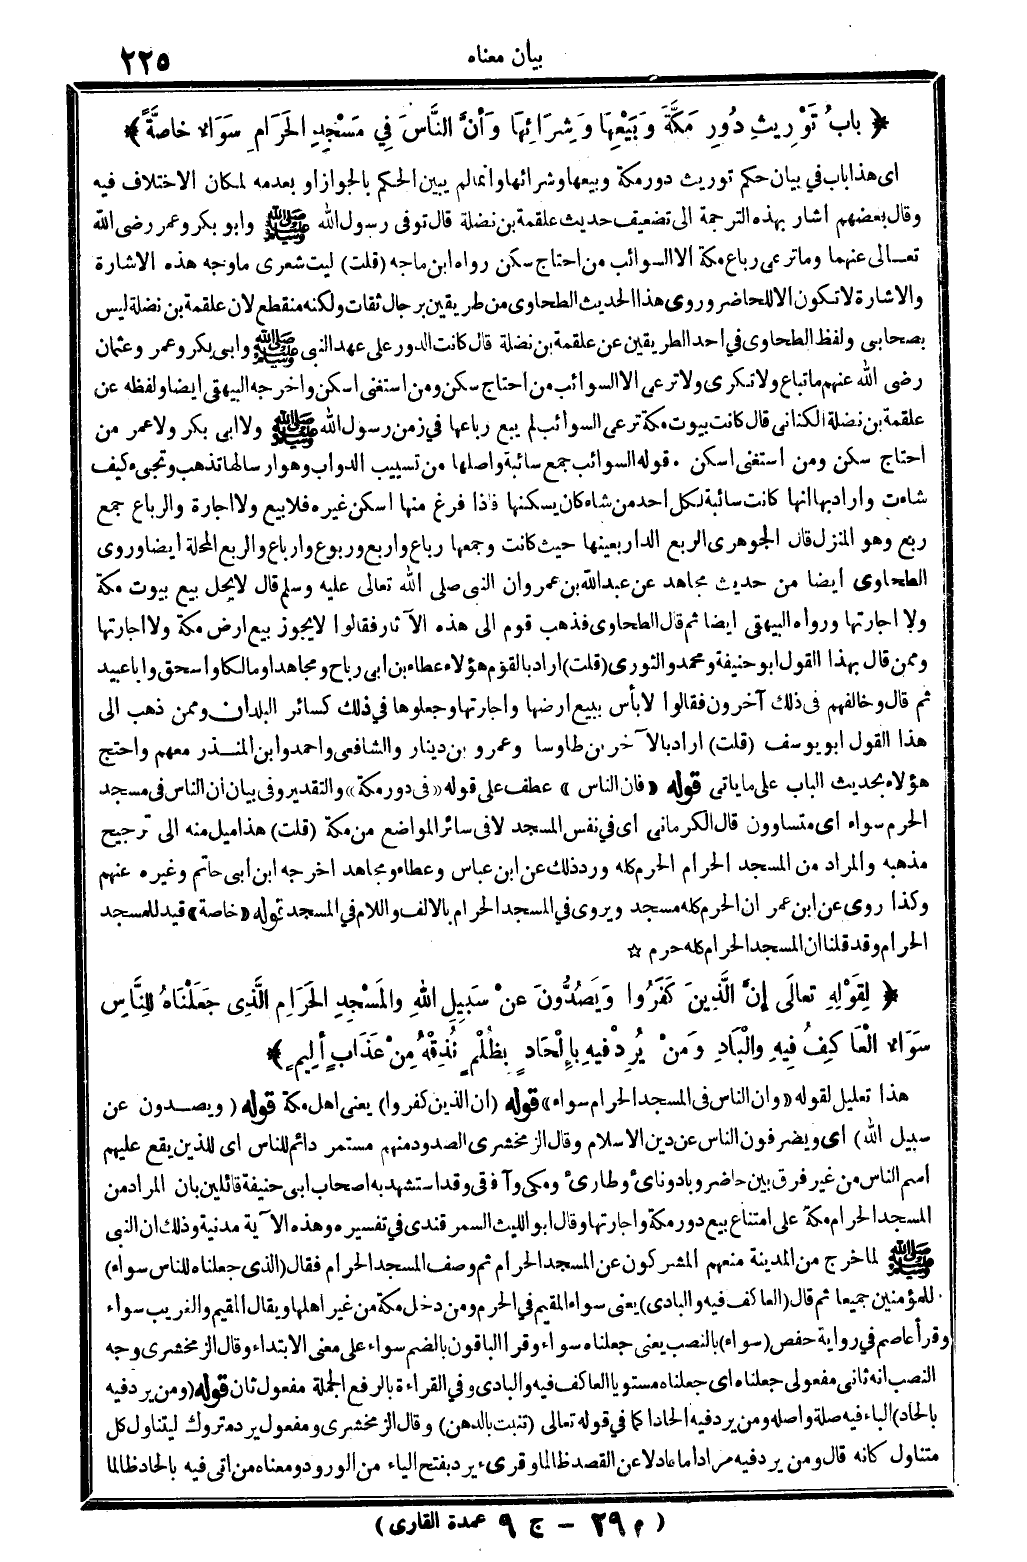 بيان معناه
٢٢٥
﴿ بابُ تَوْرِيثِ دُورِ مَكَّةَ وَبَيْعِهَا وَشِرَائِهَا وَأَنَّ النَّاسَ فِي مَسْجِدِ الْحَرَامِ سَوَاء خاصَّةً ﴾
اى هذا باب في بيان حكم توريث دور مكة وبيعها وشرائها وانما لم يبين الحكم بالجواز او بعدمه لمكان الاختلاف فيه
وقال بعضهم اشار بهذه الترجمة الى تضعيف حديث علقمة بن نضلة قال توفى رسول الله ﷺ وابو بكر وعمر رضى الله
تعالى عنهما وما ترعى رباع مكة الا السوائب من احتاج سكن رواه ابن ماجه (قلت) ليت شعرى ما وجه هذه الاشارة
والاشارة لا تكون الا للحاضر وروى هذا الحديث الطحاوى من طريقين برجال ثقات ولكنه منقطع لان علقمة بن نضلة ليس
بصحابى ولفظ الطحاوى في احد الطريقين عن علقمة بن نضلة قال كانت الدور على عهد النبى ﷺ وابى بكر وعمر وعثمان
رضى الله عنهم ما تباع ولا تكرى ولا ترعى الا السوائب من احتاج سكن ومن استغنى اسكن واخرجه البيهقى ايضا ولفظه عن
علقمة بن نضلة الكنانى قال كانت بيوت مكة ترعى السوائب لم يبع رباعها في زمن رسول الله ﷺ ولا ابى بكر ولا عمر من
احتاج سكن ومن استغنى اسكن . قوله السوائب جمع سائبة واصلها من تسييب الدواب وهو ارسالها تذهب وتجىء كيف
شاءت واراد بها انها كانت سائبة لكل احد من شاء كان يسكنها فاذا فرغ منها اسكن غيره فلا بيع ولا اجارة والرباع جمع
ربع وهو المنزل قال الجوهرى الربع الدار بعينها حيث كانت وجمعها رباع واربع وربوع وارباع والربع المحلة ايضا وروى
الطحاوى ايضا من حديث مجاهد عن عبدالله بن عمر وان النبى صلى الله تعالى عليه وسلم قال لا يحل بيع بيوت مكة
ولا اجارتها ورواه البيهقى ايضا ثم قال الطحاوى فذهب قوم الى هذه الآثار فقالوا لا يجوز بيع ارض مكة ولا اجارتها
وممن قال بهذا القول ابو حنيفة ومحمد والثورى (قلت) اراد بالقوم هؤلاء عطاء بن ابى رباح ومجاهدا ومالكا واسحق وابا عبيد
ثم قال وخالفهم فى ذلك آخرون فقالوا لا بأس ببيع ارضها واجارتها وجعلوها في ذلك كسائر البلدان وممن ذهب الى
هذا القول ابو يوسف (قلت) اراد بالآخرين طاوسا وعمرو بن دينار والشافعى واحمد وابن المنذر معهم واحتج
هؤلاء بحديث الباب على ما ياتى قوله «فان الناس» عطف على قوله «فى دور مكة» والتقدير وفى بيان ان الناس فى مسجد
الحرم سواء اى متساوون قال الكرمانى اى فى نفس المسجد لا فى سائر المواضع من مكة (قلت) هذا ميل منه الى ترجيح
مذهبه والمراد من المسجد الحرام الحرم كله ورد ذلك عن ابن عباس وعطاء ومجاهد اخرجه ابن ابى حاتم وغيره عنهم
وكذا روى عن ابن عمر ان الحرم كله مسجد ويروى في المسجد الحرام بالالف واللام في المسجد قوله «خاصة» قيد للمسجد
الحرام وقد قلنا ان المسجد الحرام كله حرم ☆
﴿ لِقَوْلِهِ تعالَى إنَّ الَّذِينَ كَفَرُوا وَيَصُدُّونَ عنْ سَبِيلِ اللهِ والمَسْجِدِ الحَرَامِ الَّذِى جَعَلْنَاهُ لِلنَّاسِ
سَوَاء الْعَاكِفُ فِيهِ والْبَادِ وَمَنْ يُرِدْ فِيهِ بِإِلْحَادٍ بِظُلْمٍ نُذِقْهُ مِنْ عَذَابٍ ألِيمٍ ﴾
هذا تعليل لقوله «وان الناس فى المسجد الحرام سواء» قوله (ان الذين كفروا) يعنى اهل مكة قوله (ويصدون عن
سبيل الله) اى ويصرفون الناس عن دين الاسلام وقال الزمخشرى الصدود منهم مستمر دائم للناس اى للذين يقع عليهم
اسم الناس من غير فرق بين حاضر وباد ونائ وطارئ ومكى وآفقى وقد استشهد به اصحاب ابى حنيفة قائلين بان المراد من
المسجد الحرام مكة على امتناع بيع دور مكة واجارتها وقال ابو الليث السمرقندى في تفسيره وهذه الآية مدنية وذلك ان النبى
ﷺ لما خرج من المدينة منعهم المشركون عن المسجد الحرام ثم وصف المسجد الحرام فقال (الذى جعلناه للناس سواء)
للمؤمنين جميعا ثم قال (العاكف فيه والبادى) يعنى سواء المقيم في الحرم ومن دخل مكة من غير اهلها ويقال المقيم والغريب سواء
وقرأ عاصم في رواية حفص (سواء) بالنصب يعنى جعلناه سواء وقرا الباقون بالضم سواء على معنى الابتداء وقال الزمخشرى وجه
النصب انه ثانى مفعولى جعلناه اى جعلناه مستويا العاكف فيه والبادى وفي القراءة بالرفع الجملة مفعول ثان قوله (ومن يرد فيه
بالحاد) الباء فيه صلة واصله ومن يرد فيه الحادا كما في قوله تعالى (تنبت بالدهن) وقال الزمخشرى ومفعول يرد متروك ليتناول كل
متناول كانه قال ومن يرد فيه مرادا ما عادلا عن القصد ظالما وقرىء يرد بفتح الياء من الورود ومعناه من اتى فيه بالحاد ظالما
(م ٢٩ – ج ٩ عمدة القارى)